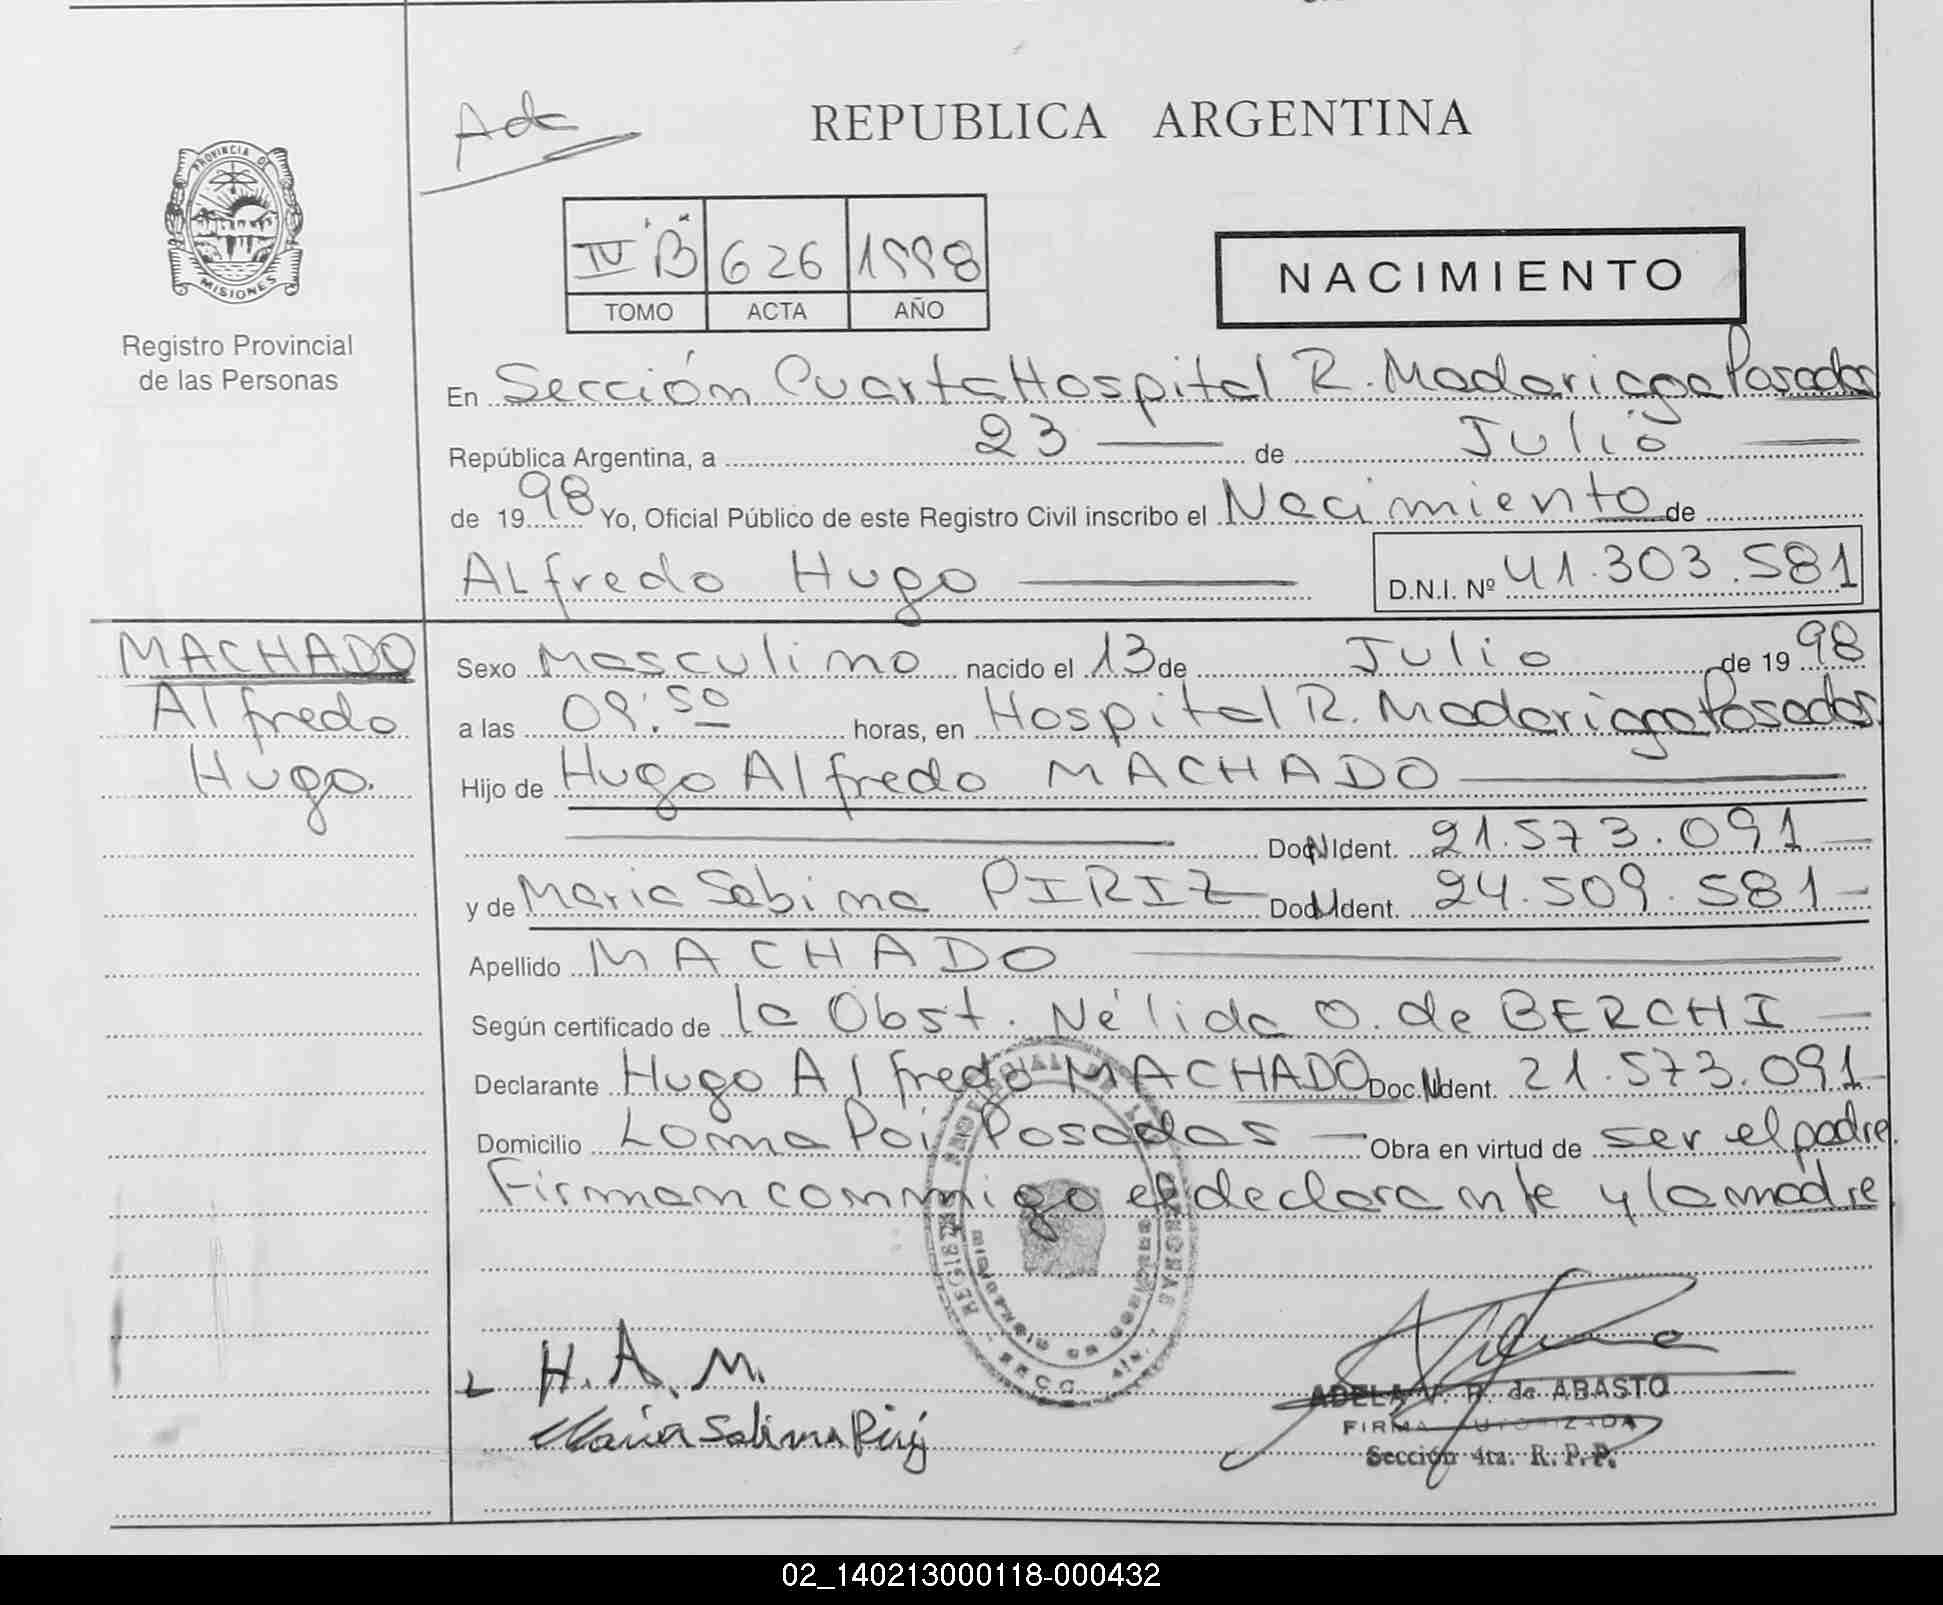 Adc
REPUBLICA ARGENTINA
PROVINCIA DE MISIONES
Registro Provincial
de las Personas
IV "B" 626 1998
TOMO ACTA AÑO
NACIMIENTO
En Sección Cuarta Hospital R. Madariaga Posadas
República Argentina, a 23 de Julio
de 1998 Yo, Oficial Público de este Registro Civil inscribo el Nacimiento de
ALfredo Hugo D.N.I. Nº 41.303.581
MACHADO
Alfredo
Hugo.
Sexo Masculino nacido el 13 de Julio de 1998
a las 09:50 horas, en Hospital R. Madariaga Posadas.
Hijo de Hugo Alfredo MACHADO
Doc. N Ident. 21.573.091
y de Maria Sabina PIRIZ Doc. N Ident. 24.509.581
Apellido MACHADO
Según certificado de la Obst. Nélida O. de BERCHI
Declarante Hugo Alfredo MACHADO Doc. N Ident. 21.573.091
Domicilio Loma Poi Posadas Obra en virtud de ser el padre.
Firman conmigo el declarante y la madre
REGISTRO PROVINCIAL DE LAS PERSONAS
MINISTERIO DE GOBIERNO
SECC. 4ta.
H.A.M.
Maria Sabina Piriz
ADELA V. R. de ABASTO
FIRMA AUTORIZADA
Sección 4ta. R. P. P.
02_140213000118-000432